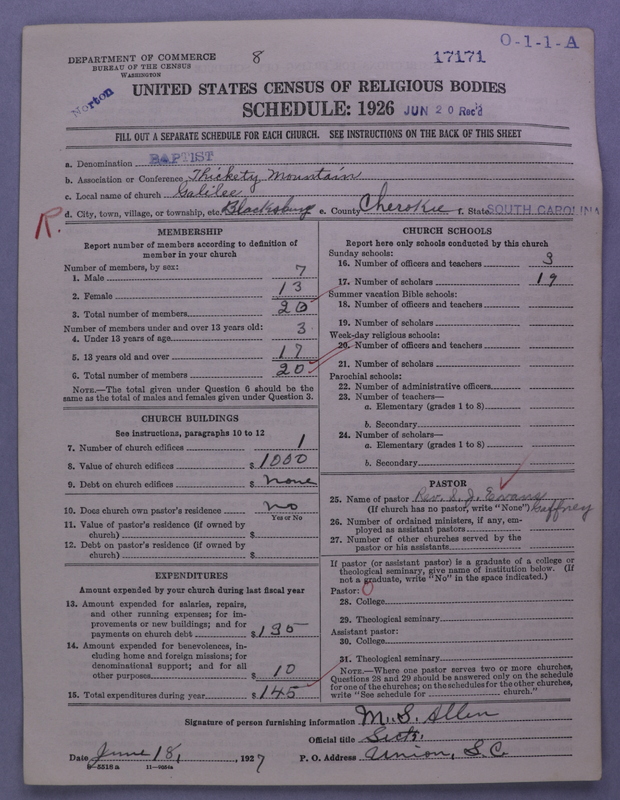 DEPARTMENT OF COMMERCE
BUREAU OF THE CENSUS
WASHINGTON
8
17171
O-1-1-A
Norton
UNITED STATES CENSUS OF RELIGIOUS BODIES
SCHEDULE: 1926 JUN 20 Rec'd
FILL OUT A SEPARATE SCHEDULE FOR EACH CHURCH. SEE INSTRUCTIONS ON THE BACK OF THIS SHEET
a. Denomination BAPTIST
b. Association or Conference Thickety Mountain
c. Local name of church Galilee
R. d. City, town, village, or township, etc. Blacksburg e. County Cherokie f. State SOUTH CAROLINA
MEMBERSHIP
Report number of members according to definition of
member in your church
Number of members, by sex:
1. Male 7
2. Female 13
3. Total number of members 20
Number of members under and over 13 years old:
4. Under 13 years of age 3
5. 13 years old and over 17
6. Total number of members 20
NOTE.—The total given under Question 6 should be the
same as the total of males and females given under Question 3.
CHURCH BUILDINGS
See instructions, paragraphs 10 to 12
7. Number of church edifices 1
8. Value of church edifices $ 1000
9. Debt on church edifices $ none
10. Does church own pastor's residence no
Yes or No
11. Value of pastor's residence (if owned by
church) $
12. Debt on pastor's residence (if owned by
church) $
EXPENDITURES
Amount expended by your church during last fiscal year
13. Amount expended for salaries, repairs,
and other running expenses; for im-
provements or new buildings; and for
payments on church debt $ 135
14. Amount expended for benevolences, in-
cluding home and foreign missions; for
denominational support; and for all
other purposes $ 10
15. Total expenditures during year $ 145
CHURCH SCHOOLS
Report here only schools conducted by this church
Sunday schools:
16. Number of officers and teachers 3
17. Number of scholars 19
Summer vacation Bible schools:
18. Number of officers and teachers
19. Number of scholars
Week-day religious schools:
20. Number of officers and teachers
21. Number of scholars
Parochial schools:
22. Number of administrative officers
23. Number of teachers—
a. Elementary (grades 1 to 8)
b. Secondary
24. Number of scholars—
a. Elementary (grades 1 to 8)
b. Secondary
PASTOR
25. Name of pastor Rev. S. J. Evans
(If church has no pastor, write "None") Gaffney
26. Number of ordained ministers, if any, em-
ployed as assistant pastors
27. Number of other churches served by the
pastor or his assistants
If pastor (or assistant pastor) is a graduate of a college or
theological seminary, give name of institution below. (If
not a graduate, write "No" in the space indicated.)
Pastor: 0
28. College
29. Theological seminary
Assistant pastor:
30. College
31. Theological seminary
NOTE.—Where one pastor serves two or more churches,
Questions 28 and 29 should be answered only on the schedule
for one of the churches; on the schedules for the other churches,
write "See schedule for church."
Signature of person furnishing information M. S. Allen
Official title Sect.
Date June 18, 1927 P. O. Address Union, S.C.
8-5518 a 11-9054a